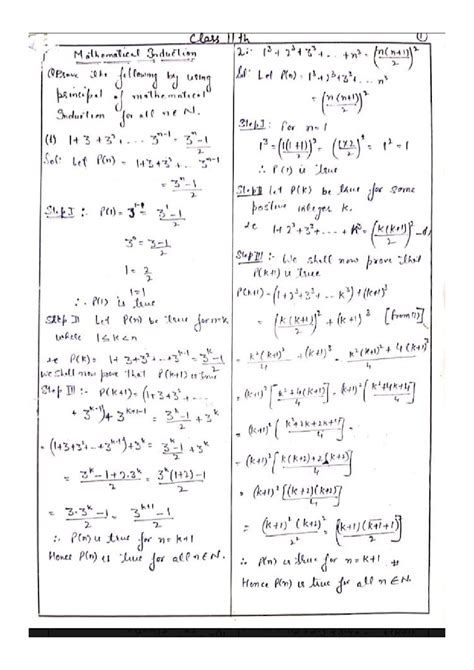 Class 11th
①
Mathematical Induction
Q Prove the following by using
principal of mathematical
Induction for all n ∈ N.
(1) 1+3+3²+... 3ⁿ⁻¹ = (3ⁿ-1)/2
Sol: Let P(n) = 1+3+3²... 3ⁿ⁻¹
= (3ⁿ-1)/2
Step I :- P(1) = 3¹⁻¹ = (3¹-1)/2
3⁰ = (3-1)/2
1 = 2/2
1=1
∴ P(1) is true
Step II Let P(n) be true for n=k
where 1≤k<n
ie P(k) = 1+3+3²+...+3ᵏ⁻¹ = (3ᵏ-1)/2
we shall now prove that P(k+1) is true
Step III :- P(k+1) = (1+3+3²+...
+ 3ᵏ⁻¹)+ 3ᵏ⁺¹⁻¹ = (3ᵏ-1)/2 + 3ᵏ
= (1+3+3²+...+3ᵏ⁻¹)+3ᵏ = (3ᵏ-1)/2 + 3ᵏ
= (3ᵏ-1+2.3ᵏ)/2 = (3ᵏ(1+2)-1)/2
= (3.3ᵏ-1)/2 = (3ᵏ⁺¹-1)/2
∴ P(n) is true for n=k+1
Hence P(n) is true for all n∈N.
2:- 1³+2³+3³+... +n³ = (n(n+1)/2)²
Sol: Let P(n) = 1³+2³+3³... n³
= (n(n+1)/2)²
Step I: For n=1
1³ = (1(1+1)/2)² = (1×2/2)² = 1² = 1
∴ P(1) is true
Step II Let P(k) be true for some
positive integer k.
ie 1+2³+3³+...+ k³ = (k(k+1)/2)²
Step III :- We shall now prove that
P(k+1) is true
P(k+1) = (1+2³+3³+... k³)+(k+1)³
= (k(k+1)/2)² + (k+1)³ [from (1)]
= k²(k+1)²/4 + (k+1)³ = (k²(k+1)² + 4(k+1)³)/4
= (k+1)² [(k²+4(k+1))/4] = (k+1)² [(k²+4k+4)/4]
= (k+1)² [(k²+2k+2k+4)/4]
= (k+1)² [(k(k+2)+2(k+2))/4]
= (k+1)² [(k+2)(k+2)/4]
= (k+1)²(k+2)²/2² = [(k+1)(k+1+1)/2]²
∴ P(n) is true for n=k+1
Hence P(n) is true for all n∈N.